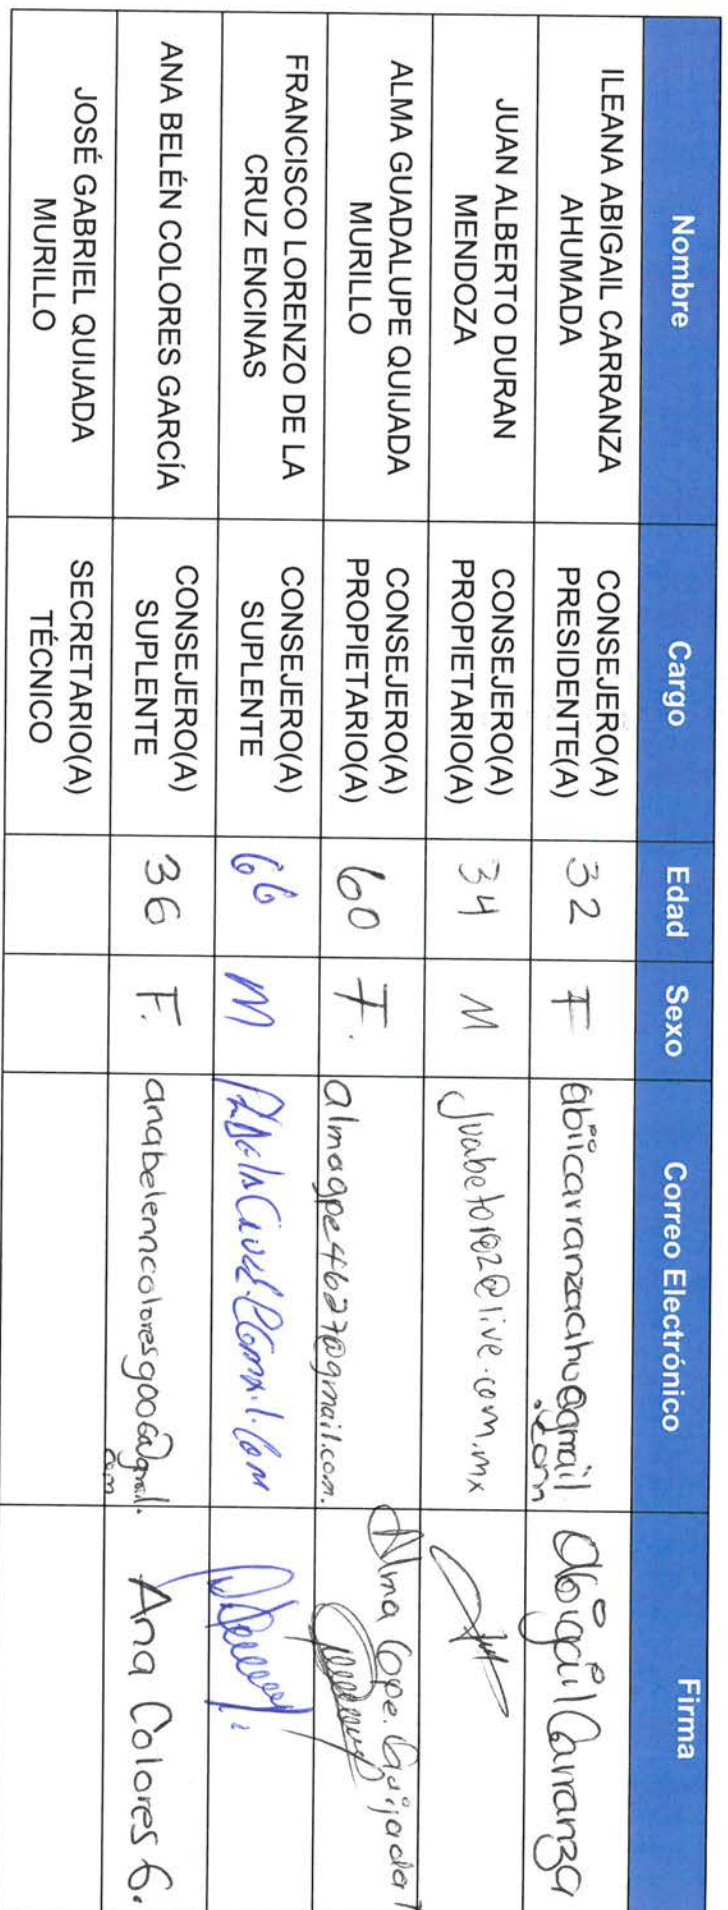 Nombre Cargo Edad Sexo Correo Electrónico Firma
ILEANA ABIGAIL CARRANZA
AHUMADA
CONSEJERO(A)
PRESIDENTE(A)
32
F
abiicarranzaahu@gmail
.com
Abigail Carranza
JUAN ALBERTO DURAN
MENDOZA
CONSEJERO(A)
PROPIETARIO(A)
34
M
@live.com.mx
ALMA GUADALUPE QUIJADA
MURILLO
CONSEJERO(A)
PROPIETARIO(A)
60
F.
almagpe4627@gmail.com.
Alma Gpe. Quijada
FRANCISCO LORENZO DE LA
CRUZ ENCINAS
CONSEJERO(A)
SUPLENTE
66
M
ANA BELÉN COLORES GARCÍA
CONSEJERO(A)
SUPLENTE
36
F.
anabelenncoloresg006@gmail.
com
Ana Colores G.
JOSÉ GABRIEL QUIJADA
MURILLO
SECRETARIO(A)
TÉCNICO